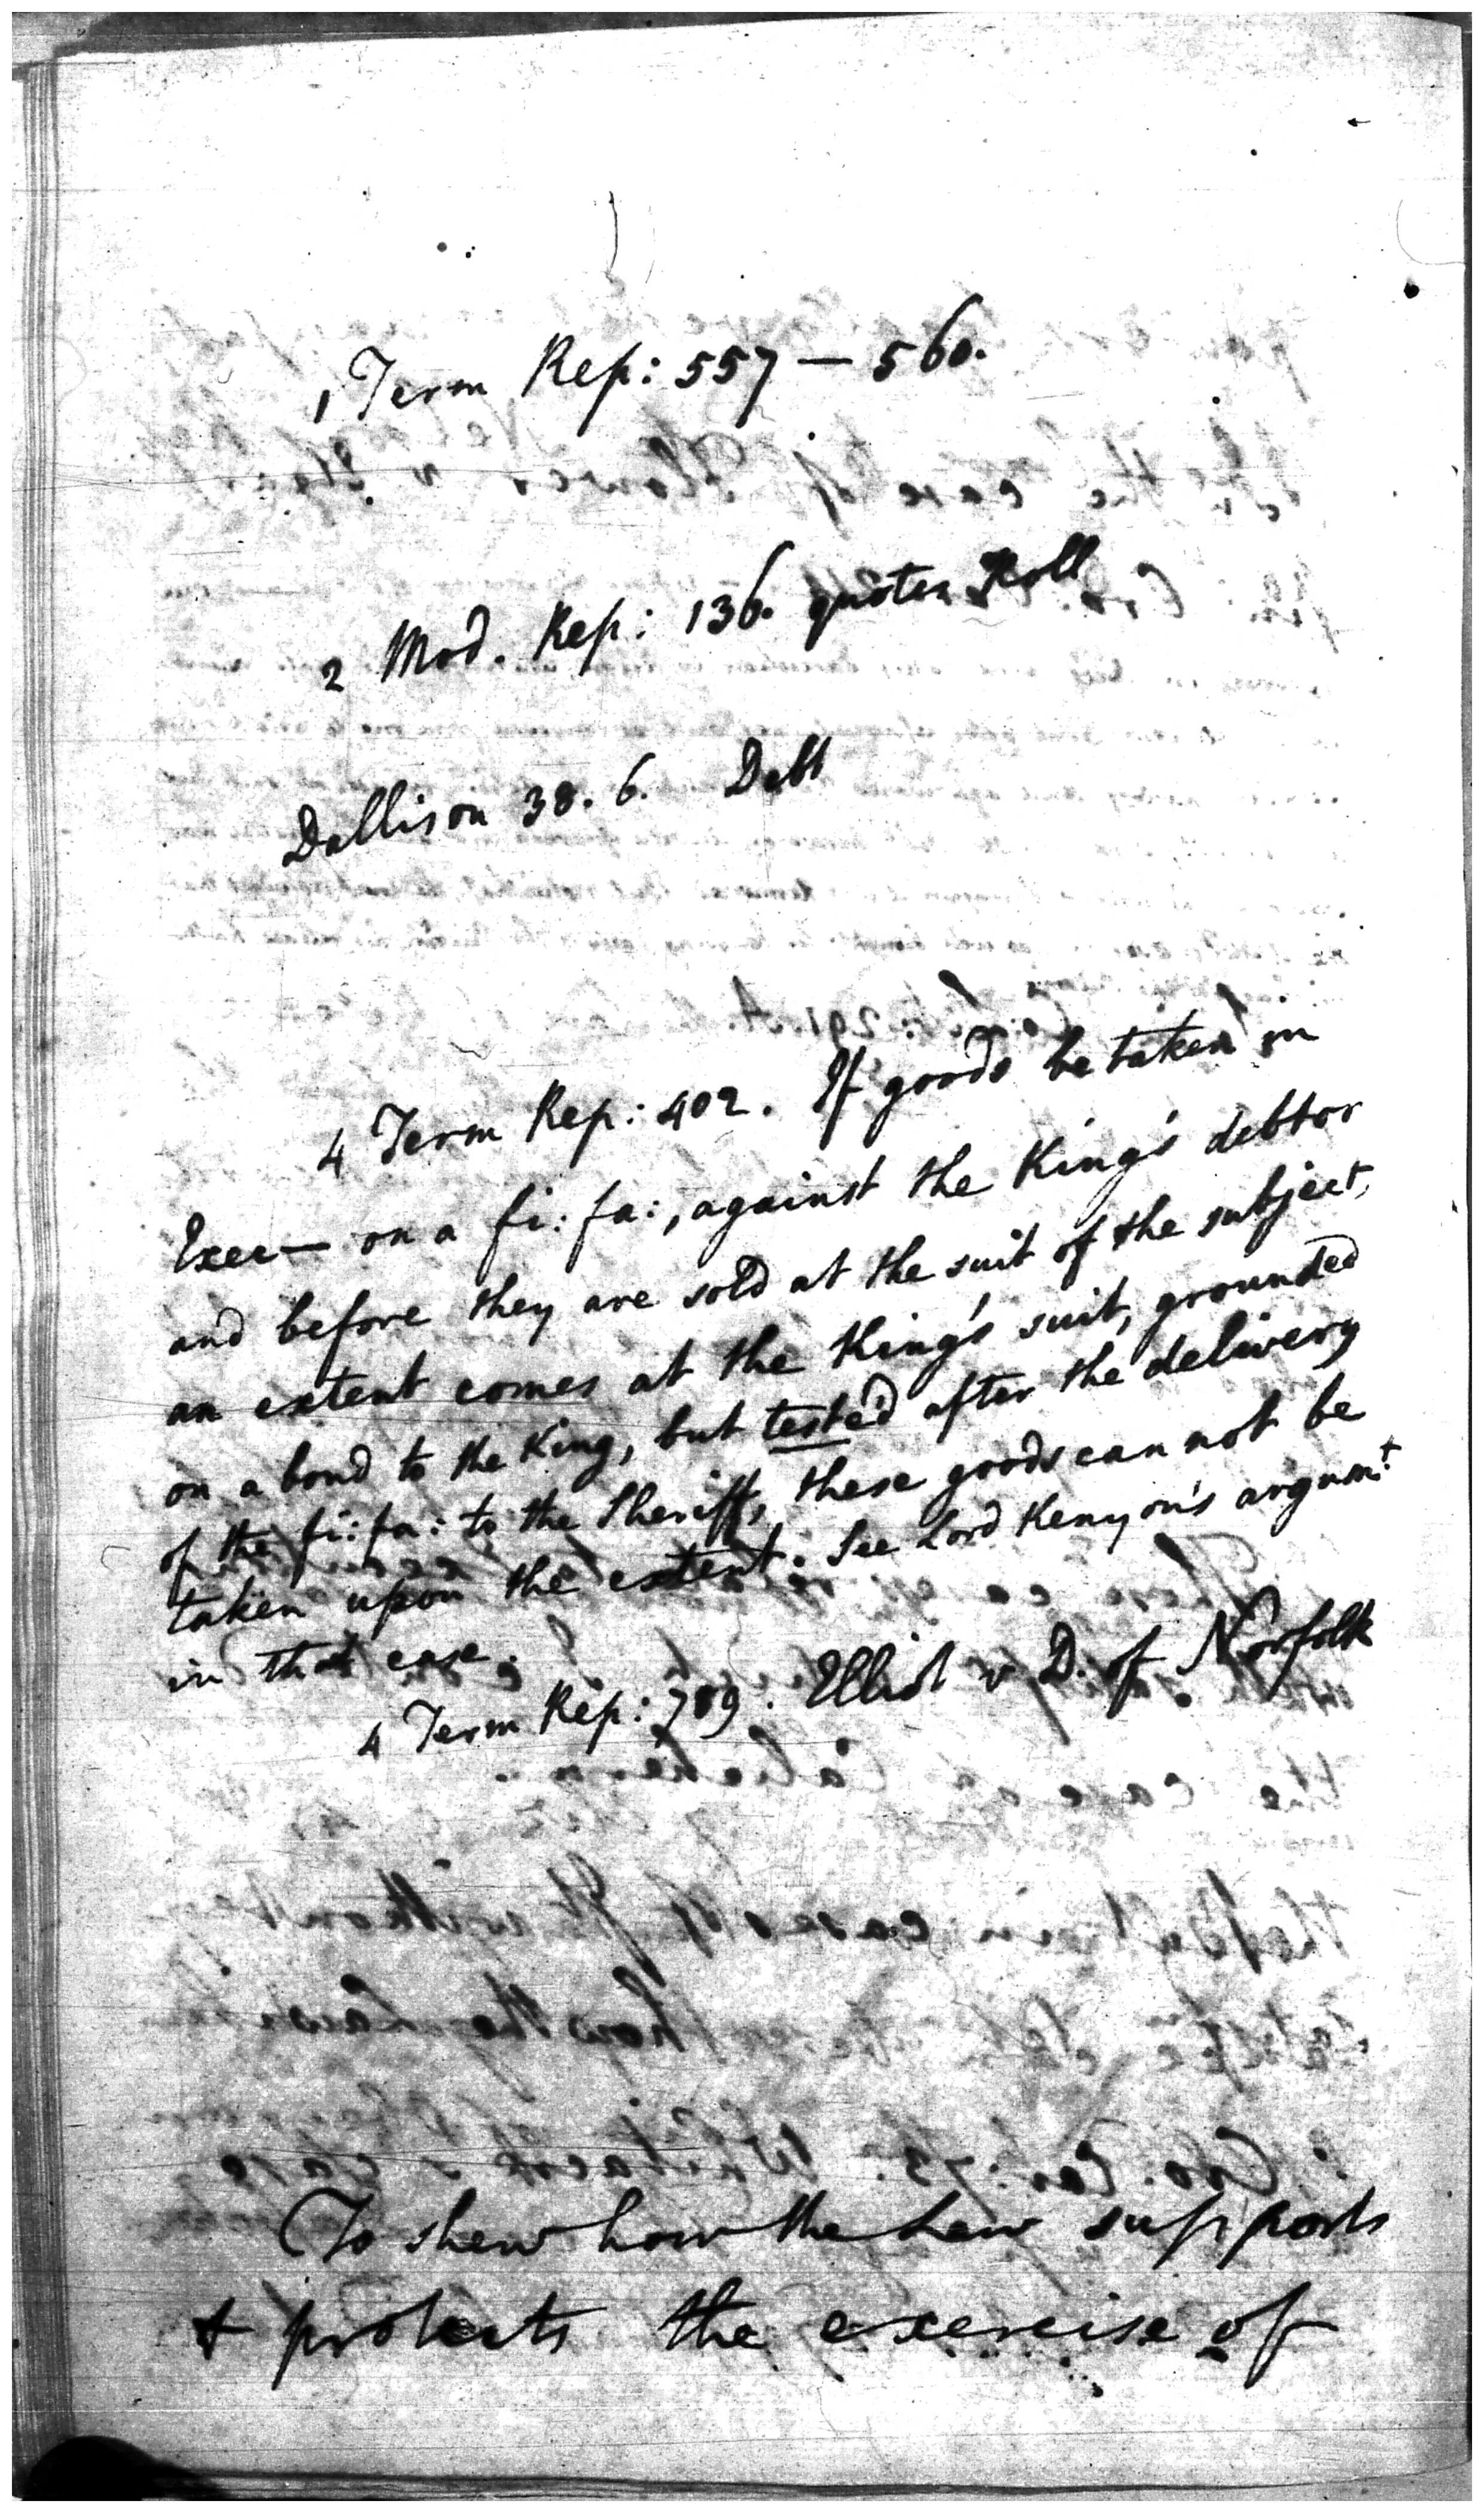 1 Term Rep: 557 — 560.
2 Mod. Rep: 136. quotes Roll
Dallison 38. 6. Debt
4 Term Rep: 402. If goods be taken in
Exec— on a fi: fa:, against the King's debtor
and before they are sold at the suit of the subject,
an extent comes at the King's suit, grounded
on a bond to the King, but teste'd after the delivery
of the fi: fa: to the Sheriff, these goods can not be
taken upon the extent. See Lord Kenyon's argumt
in that case.
4 Term Rep: 789. Elliot v D. of Norfolk
To shew how the Law supports
& protects the exercise of